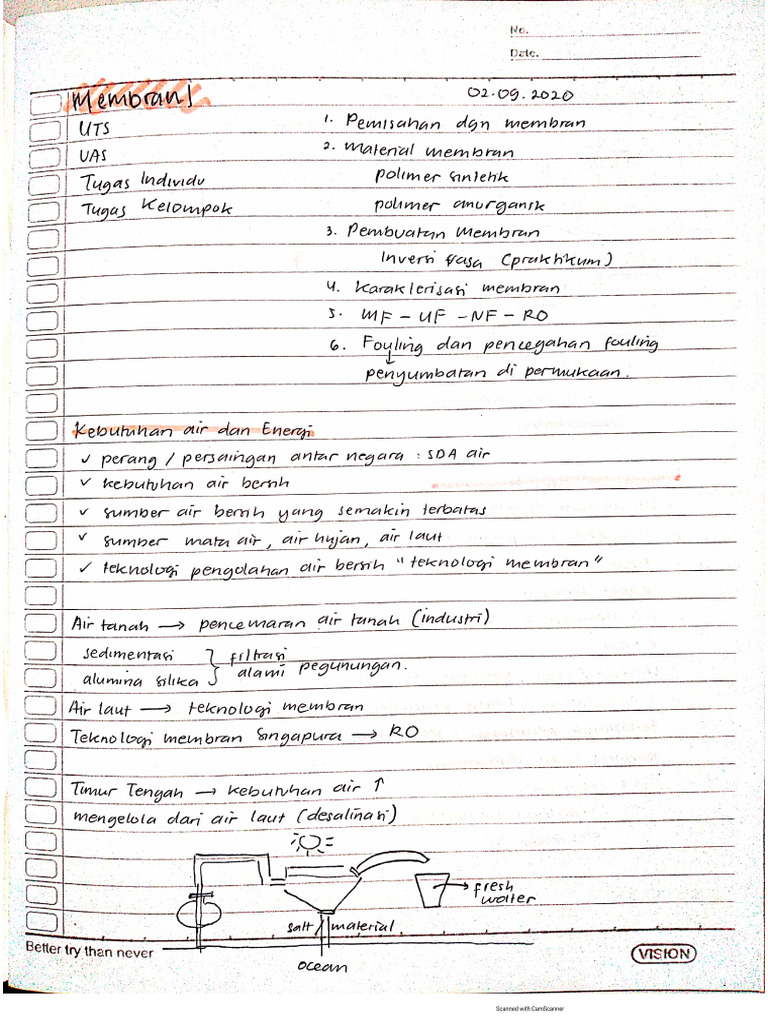 No.
Date.
Membran 02.09.2020
UTS
UAS
Tugas Individu
Tugas Kelompok
1. Pemisahan dgn membran
2. Material membran
polimer sintetik
polimer anurganik
3. Pembuatan membran
Inversi fasa (praktikum)
4. Karakterisasi membran
5. MF - UF - NF - RO
6. Fouling dan pencegahan fouling
↓
penyumbatan di permukaan.
Kebutuhan air dan Energi
✓ perang / persaingan antar negara : SDA air
✓ kebutuhan air bersih
✓ sumber air bersih yang semakin terbatas
✓ sumber mata air, air hujan, air laut
✓ teknologi pengolahan air bersih "teknologi membran"
Air tanah → pencemaran air tanah (industri)
sedimentasi
alumina silika } filtrasi alami pegunungan.
Air laut → teknologi membran
Teknologi membran Singapura → RO
Timur Tengah → kebutuhan air ↑
mengelola dari air laut (desalinasi)
→ fresh water
salt / material
ocean
Better try than never
VISION
Scanned with CamScanner